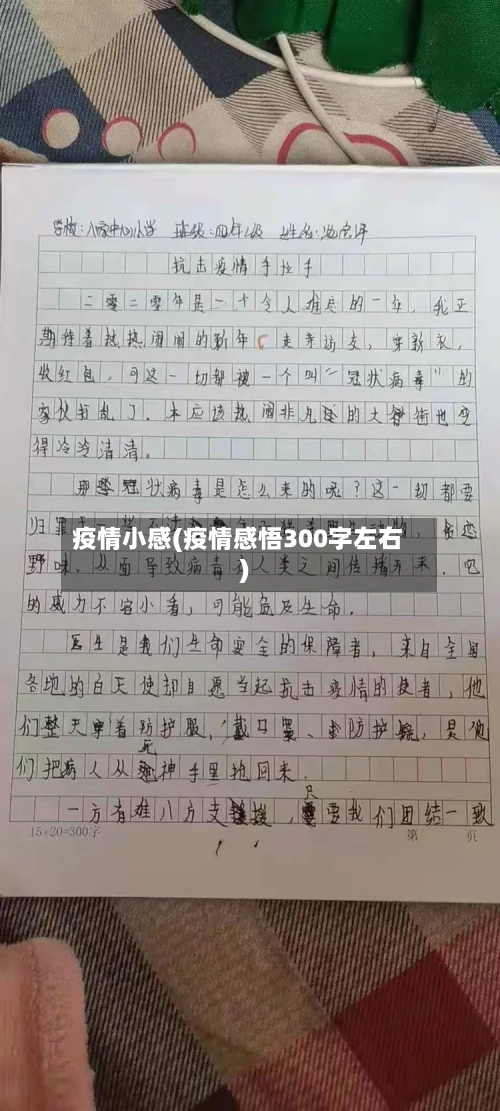 学校:八 中心小学 班级:四年 级 姓名:
抗击疫情手拉手
二零二零年是一个令人难忘的一年,我正
期待着热热闹闹的新年 走亲访友,穿新衣,
收红包,可这一切都被一个叫“冠状病毒”的
家伙打乱了.本应该热闹非凡 的大 街也变
得冷冷清清。
那 冠状病毒是怎么来的呢?这一切都要
归罪
疫情小感(疫情感悟300字左右
)
野味,从而导致病毒 人类之间传播开来.它
的威力不容小看,可能危及生命.
医生是我们生命安全的保障者,来自全国
各地的白天使却自愿当起抗击疫情的使者,他
们整天穿着防护服,戴口罩、 防护 ,是他
们把病人从死神手里抢回来.
一方有难八方支援,只要我们团结一致
15×20=300字 第 页